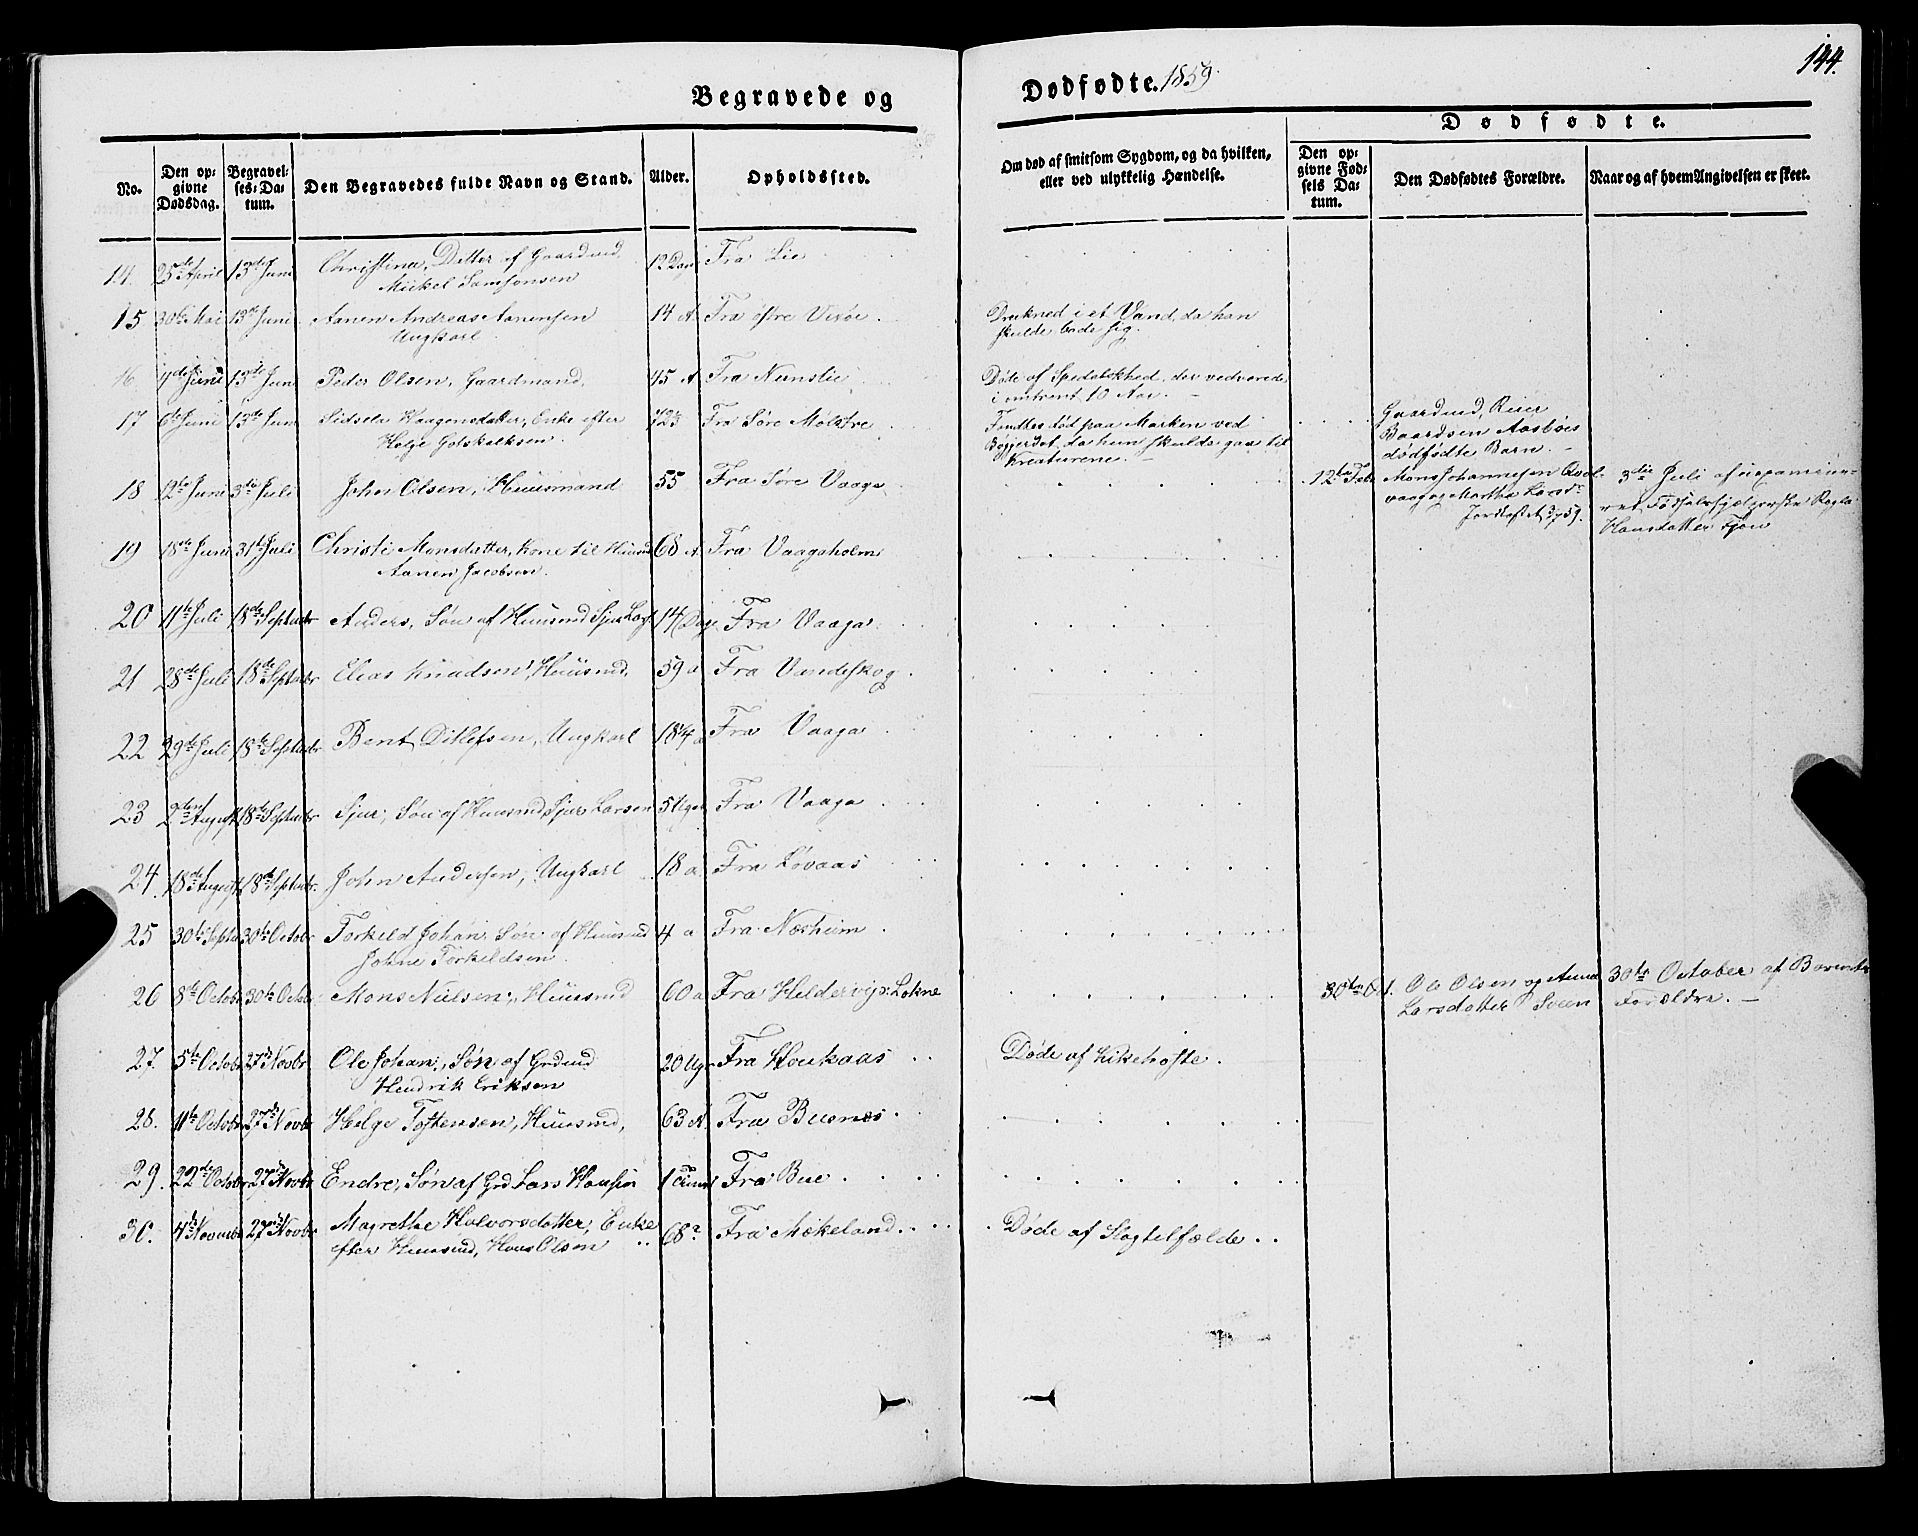 144.
Begravede og Dødfødte. 1859.
Dødfødte.
No.
Den opgivne Dødsdag.
Begravelses-Datum.
Den Begravedes fulde Navn og Stand.
Alder.
Opholdssted.
Om død af smitsom Sygdom, og da hvilken, eller ved ulykkelig Hændelse.
Den opgivne Fødsels Datum.
Den Dødfødtes Forældre.
Naar og af hvem Angivelsen er skeet.
14. 25de April 13de Juni Christina, Datter af Gaardmd 12 Dage Fra Lie
Mickel Samsonsen
15 30te Mai 13de Juni Aanen Andreas Aanensen 14 A Fra østre Vixøe . Drukned i et Vand, da han
Ungkarl. skulde bade sig.
16 Juni 13de Juni Peder Olsen, Gaardmand, 45 A Fra Nernslie Døde af Spedalskhed, der vedvarede
i omtrent 10 Aar. –
17 6te Juni 13de Juni Sidsela Haagensdatter, Enke efter Fra Søre Molstre Fandtes død paa Marken ved
Helje Gotskalksen. da hun skulde gaa til
Kreaturene. –
Gaardmd, Reier
Baardsen Aasbøes
dødfødte Barn. –
18 12te Juni 3die Juli John Olsen, Huusmand 55 Fra Søre Vaage 12te Feb Mons Johannesen 3die Juli af uexamine-
vaag og Martha Larsd. ret Fødselshjelperske
Jordfæst 3/7 59. Hansdatter Tjon
19 18de Juni 31te Juli Christi Monsdatter, Kone til Huusmd 68 A. Fra Vaagaholm
Aanen Jacobsen.
20 11te Juli 18de Septembr Anders, Søn af Huusmd Sjur Lars. 14 Dage Fra Vaaga
21 28de Juli 18de Septembr Elias Knudsen, Huusmd. 59 a Fra Vandeskog.
22 29de Juli 18de Septembr Bent Ditlefsen, Ungkarl Fra Vaaga
23 2den August 18de Septembr Sjur, Søn af Huusmd Sjur Larsen 5 Uger Fra Vaaga
24. 18de August 18de Septembr. John Andersen, Ungkarl 18 a. Fra Løvaas
25 30te Septb 30te Octobr Torkild Johan, Søn af Huusmd 4 a Fra Næsheim
Johne Torkildsen.
26 8de Octobr 30te Octbr Mons Nielsen, Huusmd 60 a Fra Heldervig: Løkne 30te Oct. Ole Olsen og Anna 30te October af Barnets
Larsdatter Sveen Forældre. –
27. 5te Octobr 27de Novbr Ole Johan, Søn af Grdmd 20 Uger Fra Houkaas Døde af Kikehoste.
Hendrik Eriksen
28. 11te Octobr 27de Novbr Helge Tostensen, Huusmd, 63 A. Fra Buenes
29. 22de Octobr 27de Novbr Endre, Søn af Grd Lars Hansen 1 Time Fra Bue
30. 4de Novembr 27de Novbr Magrethe Halvorsdatter, Enke 68 a Fra Mækeland Døde af Slagtilfælde
efter Huusmd, Hans Olsen